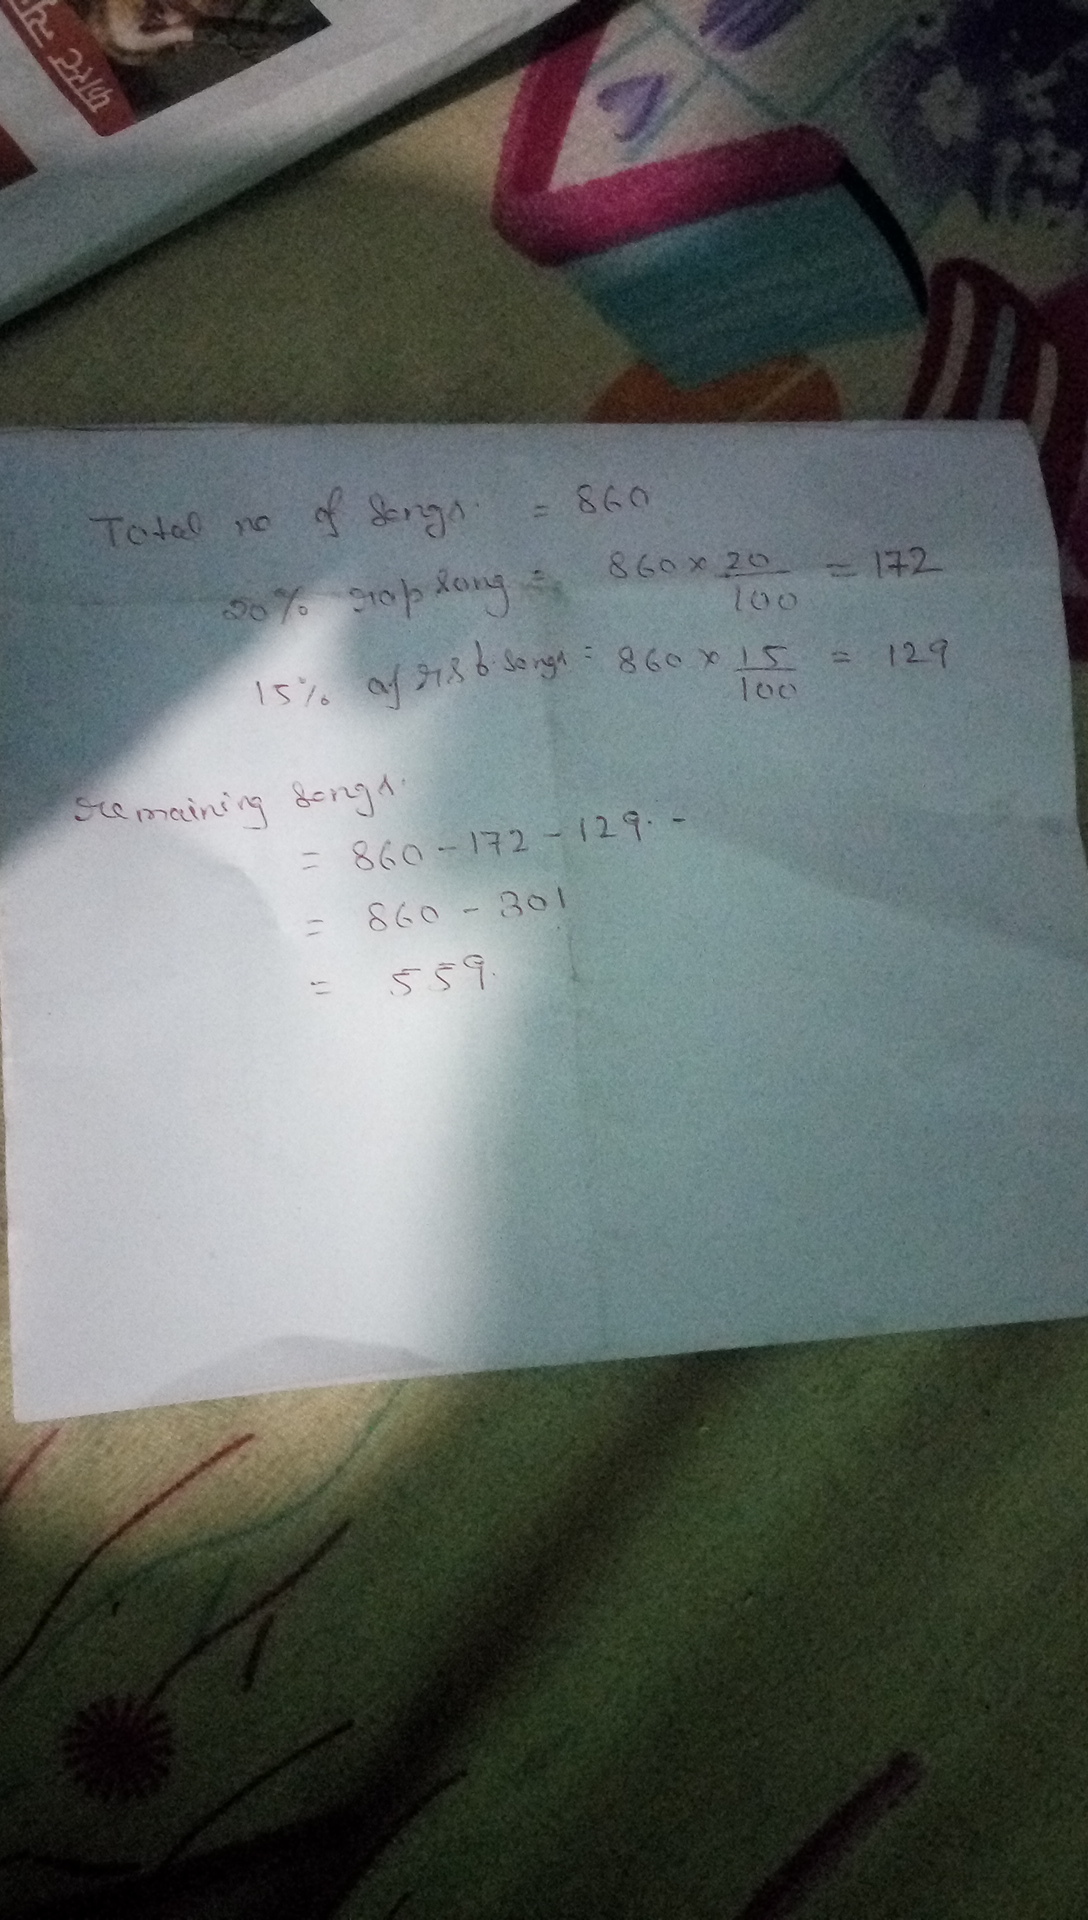 Total no of songs. = 860
20% rap song = 860 x 20/100 = 172
15% of r & b songs = 860 x 15/100 = 129
remaining songs.
= 860 - 172 - 129. -
= 860 - 301
= 559.